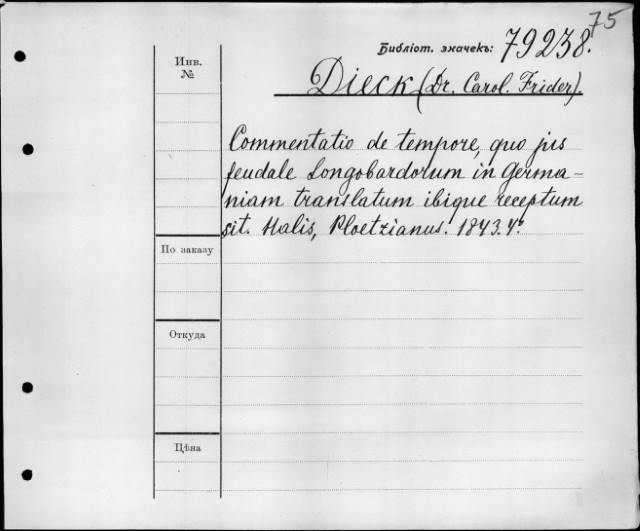 75
Библіот. значекъ: 79238.
Инв.
№
Dieck (Dr. Carol. Frider).
Commentatio de tempore, quo jus
feudale Longobardorum in Germa-
niam translatum ibique receptum
sit. Halis, Ploetzianus. 1843. 4°.
По заказу
Откуда
Цѣна